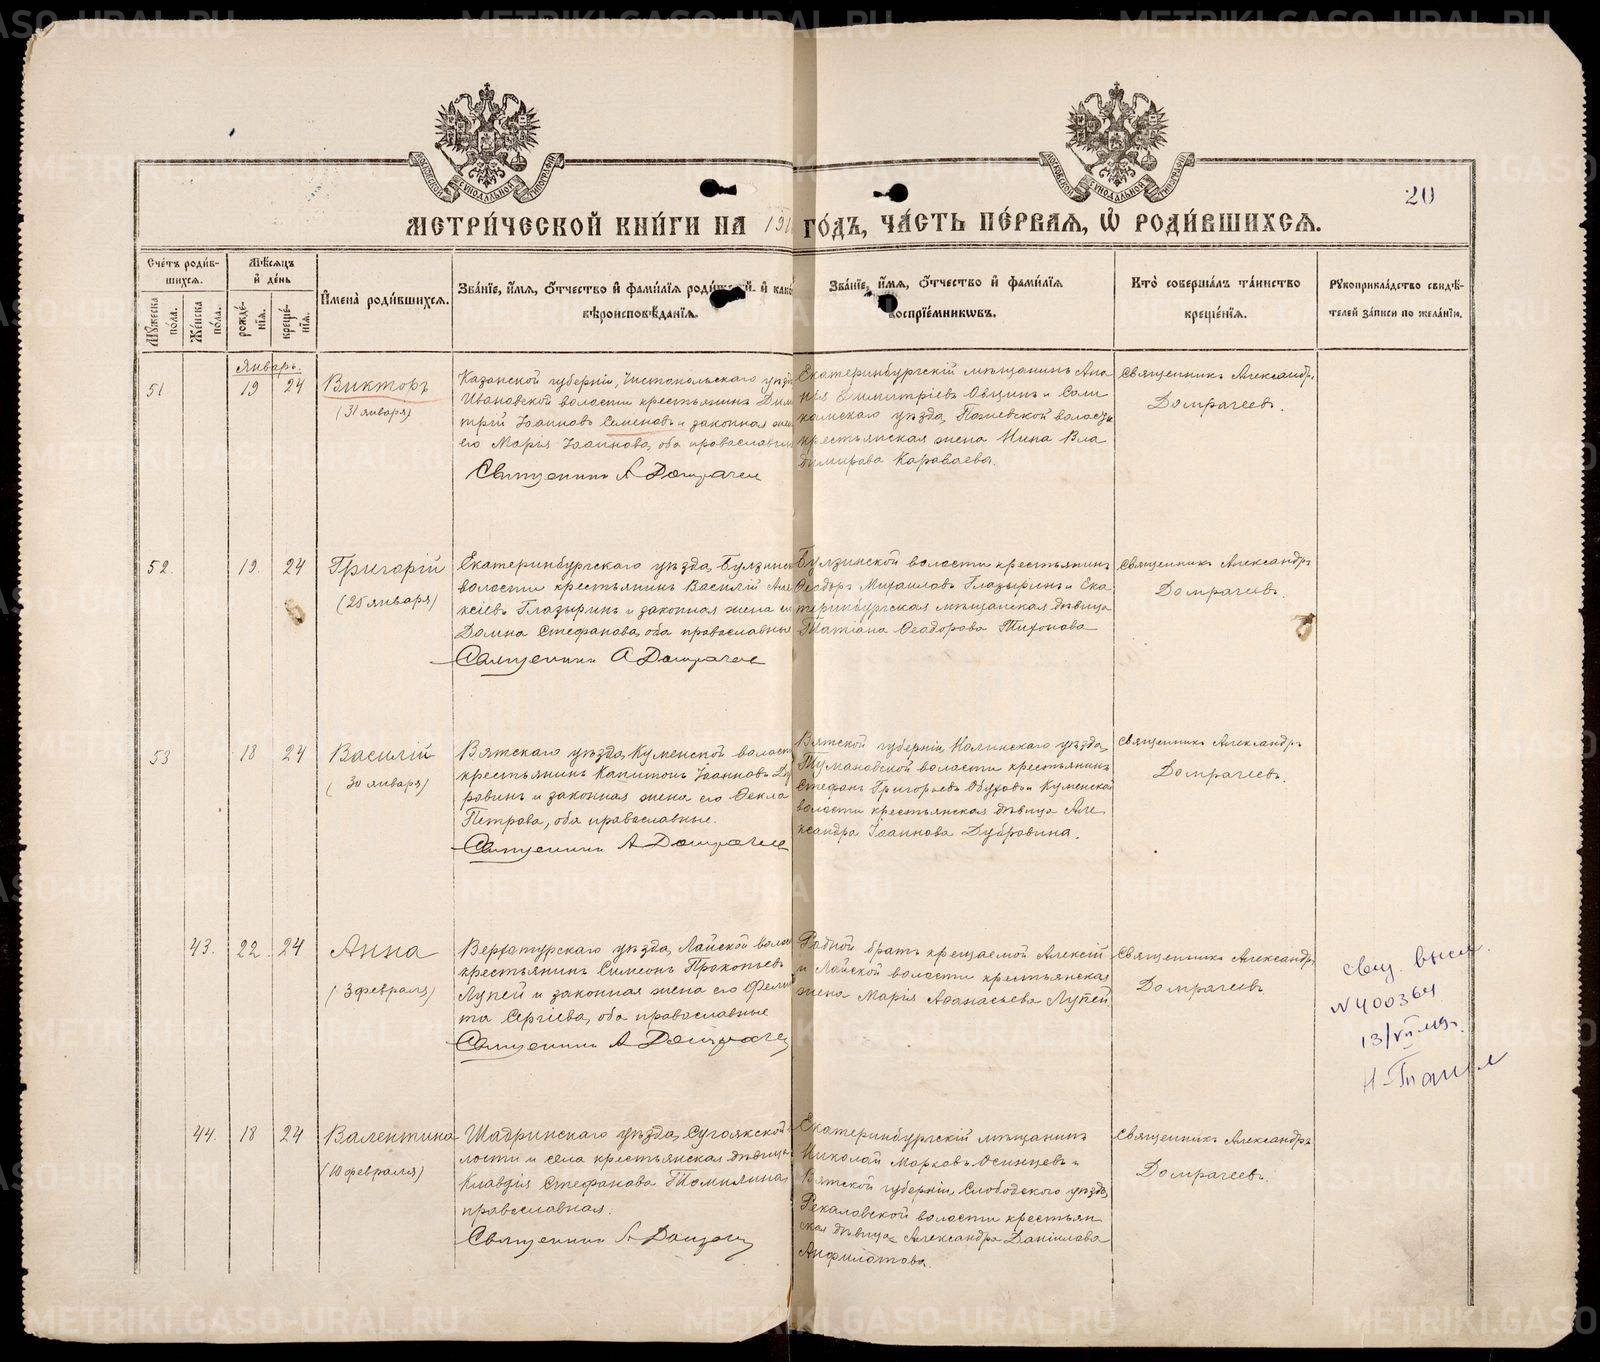 METRIKI.GASO-URAL.RU
20
МЕТРИ́ЧЕСКОЙ КНИ́ГИ НА 191 ГО́ДЪ, ЧА́СТЬ ПЕ́РВАЯ, Ѽ РОДИ́ВШИХСЯ.
Сче́тъ роди́вшихся.
Му́жеска по́ла.
Же́нска по́ла.
Мѣ́сяцъ и де́нь
рожде́нїя.
креще́нїя.
И҆мена̀ роди́вшихся.
Зва́нїе, и҆́мя, ѻ҆́тчество и҆ фами́лїя роди́ и҆ како
вѣроисповѣ́данїя.
Зва́нїе, и҆́мя, ѻ҆́тчество и҆ фами́лїя
воспрїе́мникѡвъ.
Кто̀ соверша́лъ та́инство
креще́нїя.
Рукоприкла́дство свидѣ́-
телей за́писи по жела́нїю.
Январь.
51
19
24
Викторъ
(31 января)
Казанской губерніи, Чистопольскаго уѣз
Ивановской волости крестьянинъ Дим
трій Іоанновъ Семеновъ и законная же
его Марія Іоаннова, оба православны
Священникъ А Домрачеев
Екатеринбургскій мѣщанинъ Ана
нія Димитріевъ Овцинъ и Соли
камскаго уѣзда, волости
крестьянская жена Нина Вла
димирова Караваева.
Священникъ Александръ
Домрачеевъ.
52.
19.
24
Григорій
(25 января)
Екатеринбургскаго уѣзда, Булзинск
волости крестьянинъ Василій Але
ксіевъ Глазыринъ и законная жена е
Домна Стефанова, оба православные
Священникъ А Домрачеев
Булзинской волости крестьянинъ
Ѳеодоръ Михаиловъ Глазыринъ и Ека
теринбургская мѣщанская дѣвица
Татіана Ѳеодорова Тихонова
Священникъ Александръ
Домрачеевъ.
53
18
24
Василій
(30 января)
Вятскаго уѣзда, Куменской волост
крестьянинъ Капитонъ Іоанновъ Ду
ровинъ и законная жена его Ѳекла
Петрова, оба православные.
Священникъ А Домрачеев
Вятской губерніи, Нолинскаго уѣзда,
Тумановской волости крестьянинъ
Стефанъ Григорьевъ Обуховъ и Куменской
волости крестьянская дѣвица Але
ксандра Іоаннова Дубровина.
Священникъ Александръ
Домрачеевъ.
43.
22
24
Анна
(3 февраля)
Верхотурскаго уѣзда, Лайской воло
крестьянинъ Симеонъ Прокопьевъ
Лупей и законная жена его
та Сергіева, оба православные
Священникъ А Домрачеев
Родной братъ крещаемой Алексій
и Лайской волости крестьянская
жена Марія Аѳанасьева Лупей
Священникъ Александръ
Домрачеевъ.
N400364
44.
18
24
Валентина
(10 февраля)
Шадринскаго уѣзда, Сугоякской
лости и села крестьянская дѣвица
Клавдія Стефанова Томилина
православная.
Священникъ А Домрачеев
Екатеринбургскій мѣщанинъ
Николай Марковъ Осинцевъ и
Вятской губерніи, Слободского уѣзда,
волости крестьян
ская дѣвица Александра Даніилова
Анфилатова.
Священникъ Александръ
Домрачеевъ.